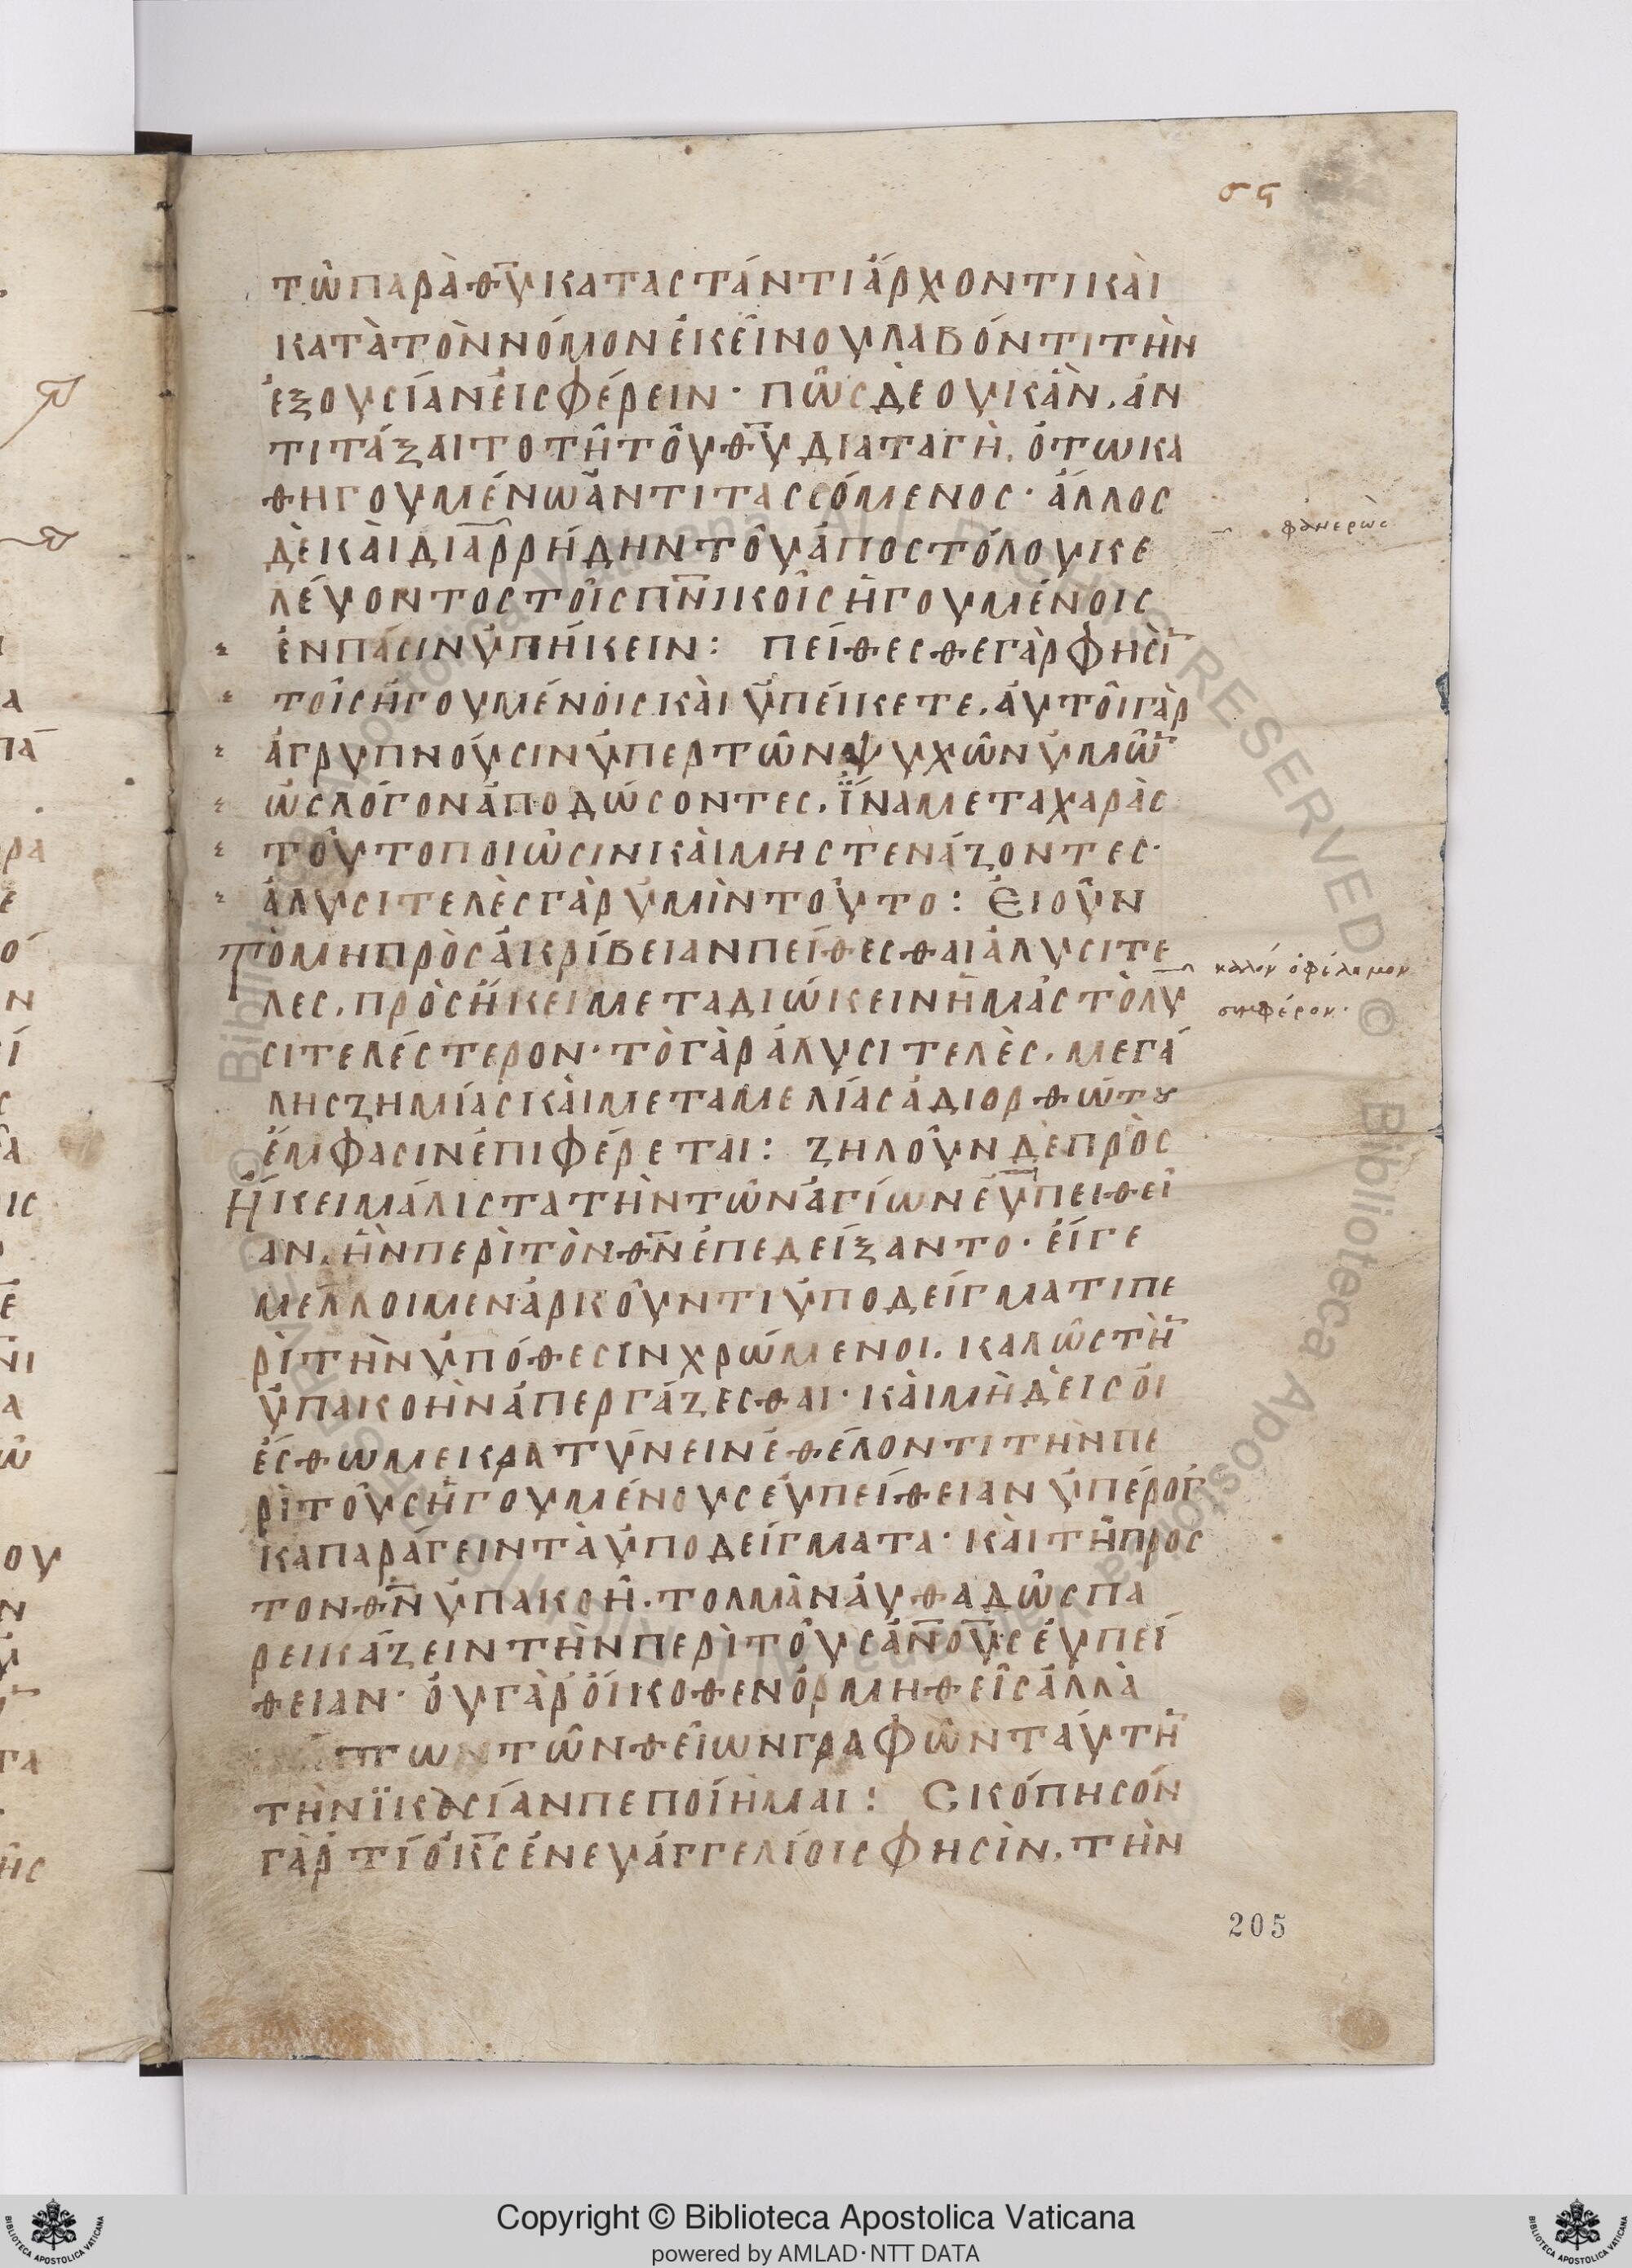 σϛ
τῶ παρὰ θ̅υ̅ καταστάντι ἄρχοντι καὶ
κατὰ τὸν νόμον ἐκείνου λαβόντι τὴν
ἐξουσίαν εἰσφέρειν· πῶς δὲ οὐκ ἂν, ἀν
τιτάξαιτο τῆ τοῦ θ̅υ̅ διαταγῆ, ὅτω κα
θηγουμένω ἀντιτασσόμενος· ἄλλως
δὲ καὶ διαρρήδην τοῦ ἀποστόλου κε
λέυοντος τοῖς π̅ν̅ικοῖς ἡγουμένοις
ἐν πάσιν ὑπήκειν: πείθεσθε γὰρ φησὶ̅
τοῖς ἡγουμένοις καὶ ὑπείκετε, ἀυτοὶ γὰρ
ἀγρυπνούσιν ὑπερ τῶν ψυχῶν ὑμῶ̅
ὡς λόγον ἀποδώσοντες, ἵνα μετα χαρὰς
τοῦτο ποιῶσιν καὶ μη στενάζοντες·
ἀλυσιτελὲς γὰρ ὑμὶν τοῦτο: Ἐι οῦν
τὸ μη πρὸς ἀκρίβειαν πείθεσθαι ἀλυσιτε
λες, πρὸσήκει μεταδιώκειν ἡμὰς τὸ λυ
σιτελέστερον· τὸ γὰρ ἀλυσιτελὲς, μεγά
λης ζημίας καὶ μεταμελίας ἀδιορθώτȣ
ἔμφασιν ἐπιφέρεται: ζηλοῦν δὲ πρὸσ
ήκει μάλιστα τὴν τῶν ἁγίων ἐυπείθει
αν, ἣν περὶ τὸν θ̅ν̅ ἐπεδείξαντο· ἔιγε
μελλοιμεν ἀρκοῦντι ὑποδείγματι πε
ρὶ τὴν ὑπόθεσιν χρώμενοι, καλῶς τὴ̅
ὑπακοὴν ἀπεργάζεσθαι· καὶ μὴδὲις ὀι
έσθω με ικρατύνειν ἐθέλοντι τὴν πε
ρὶ τοὺς ἡγουμένους ἐυπείθειαν ὑπέρογ
κα παράγειν τὰ ὑποδείγματα· καὶ τῆ προς
τον θ̅ν̅ ὑπακοῆ, τολμὰν ἀυθαδῶς πα
ρεικάζειν τὴν περὶ τοὺς ἀ̅ν̅ο̅υ̅ς ἐυπεί
θειαν· ὀυ γὰρ ὄικοθεν ὁρμηθεὶς ἀλλὰ
τῶν θείων γραφῶν ταύτη̅
τὴν ϊκεσίαν πεποίημαι: Σκόπησόν
γὰρ τί ὁ κ̅ς̅ ἐν ευάγγελίοις φησὶν, τὴν
φανερῶς
καλόν ὀφέλημον
συμφέρον·
205
© Biblioteca Apostolica Vaticana ALL RIGHTS RESERVED
Copyright © Biblioteca Apostolica Vaticana
powered by AMLAD·NTT DATA
BIBLIOTECA APOSTOLICA VATICANA
BIBLIOTECA APOSTOLICA VATICANA